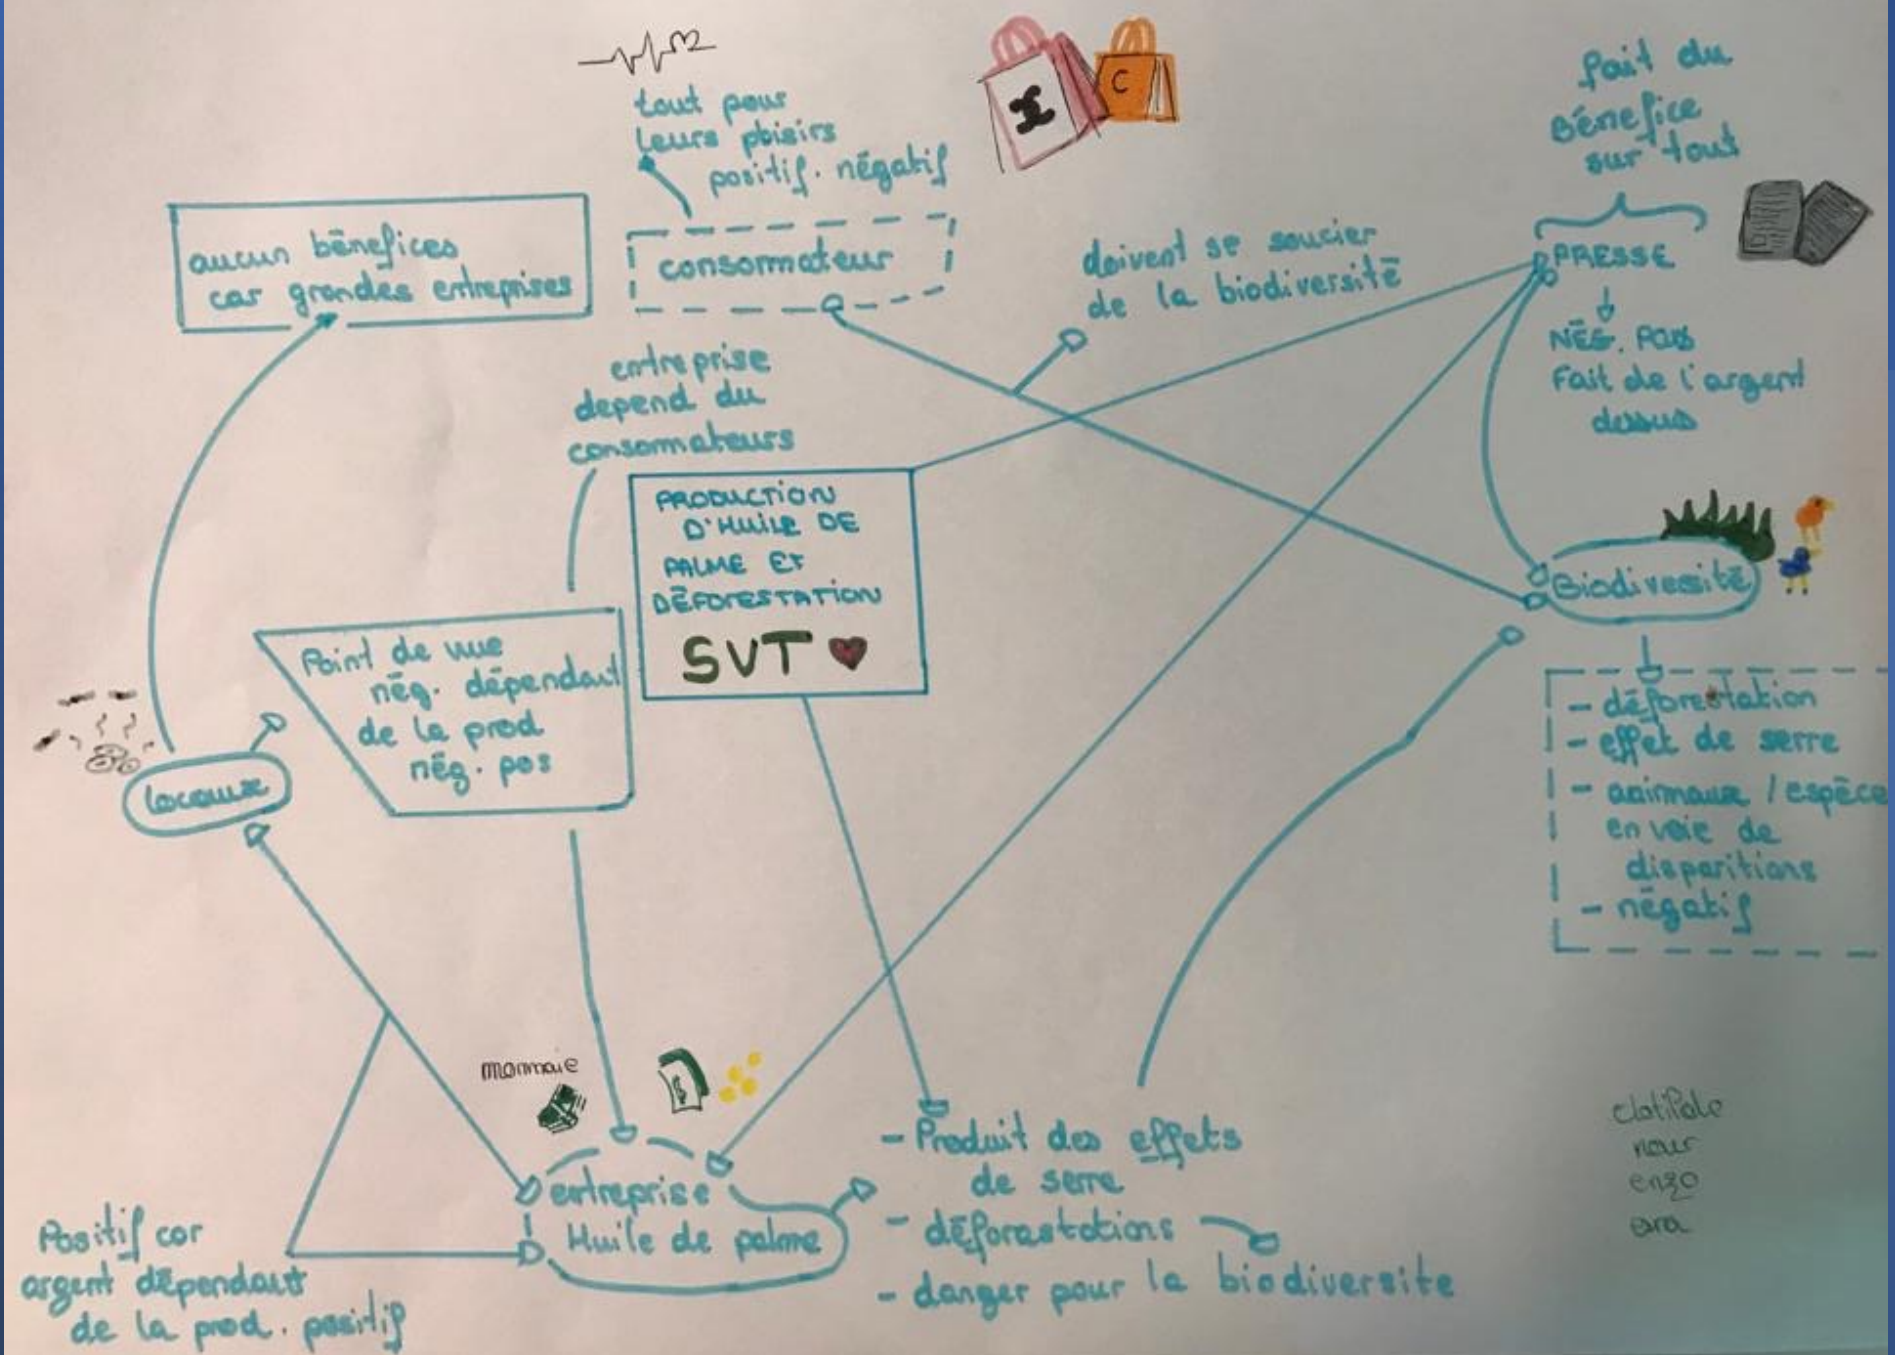 tout pour
leurs plaisirs
positif. négatif
C
fait du
Bénefice
sur tout
aucun bénefices
car grandes entreprises
consommateur
doivent se soucier
de la biodiversité
PRESSE
NÉG. POS
Fait de l'argent
dessus
entreprise
depend du
consommateurs
PRODUCTION
D'HUILE DE
PALME ET
DÉFORESTATION
SVT
Biodiversité
Point de vue
nég. dépendant
de la prod
nég. pos
locaux
- déforestation
- effet de serre
- animaux / espèce
en voie de
disparitions
- négatif
monnaie
$
entreprise
Huile de palme
- Produit des effets
de serre
- déforestations
- danger pour la biodiversite
Positif car
argent dépendant
de la prod. positif
clotilde
nour
enzo